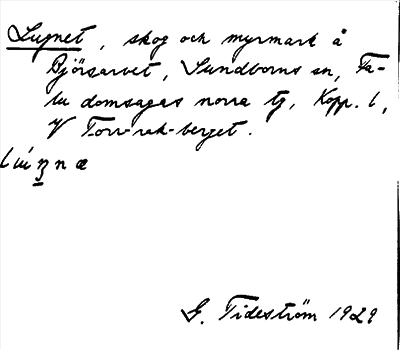 Lugnet, skog och myrmark å
Björsarvet, Sundborns sn, Fa-
lu domsagas norra tg, Kopp. l,
V Torr-rak-berget.
G. Tideström 1929